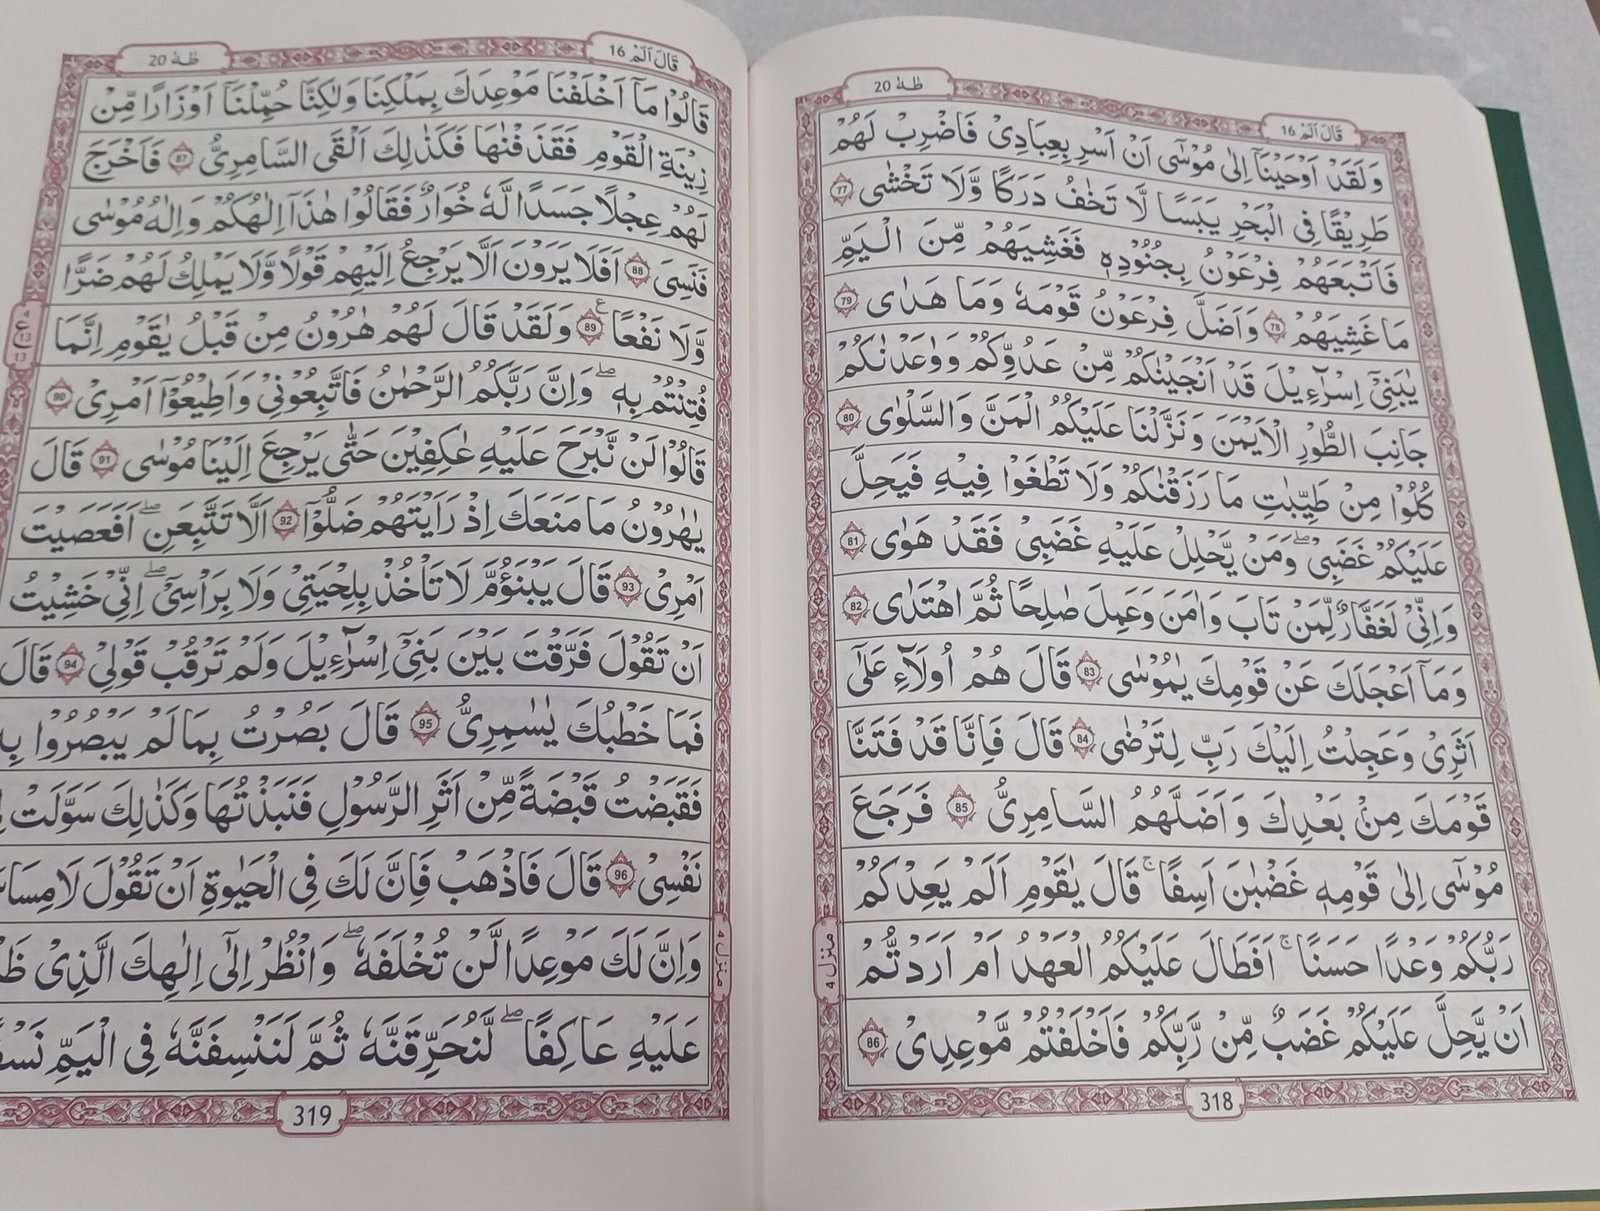 طٰهٰ 20
قَالَ اَلَمْ 16
وَلَقَدْ اَوْحَيْنَاۤ اِلٰى مُوْسٰۤى اَنْ اَسْرِ بِعِبَادِىْ فَاضْرِبْ لَهُمْ
طَرِيْقًا فِى الْبَحْرِ يَبَسًا لَّا تَخٰفُ دَرَكًا وَّلَا تَخْشٰى 77
فَاَتْبَعَهُمْ فِرْعَوْنُ بِجُنُوْدِهٖ فَغَشِيَهُمْ مِّنَ الْيَمِّ
مَا غَشِيَهُمْ 78 وَاَضَلَّ فِرْعَوْنُ قَوْمَهٗ وَمَا هَدٰى 79
يٰبَنِىْۤ اِسْرَآءِيْلَ قَدْ اَنْجَيْنٰكُمْ مِّنْ عَدُوِّكُمْ وَوٰعَدْنٰكُمْ
جَانِبَ الطُّوْرِ الْاَيْمَنَ وَنَزَّلْنَا عَلَيْكُمُ الْمَنَّ وَالسَّلْوٰى 80
كُلُوْا مِنْ طَيِّبٰتِ مَا رَزَقْنٰكُمْ وَلَا تَطْغَوْا فِيْهِ فَيَحِلَّ
عَلَيْكُمْ غَضَبِىْ ۖ وَمَنْ يَّحْلِلْ عَلَيْهِ غَضَبِىْ فَقَدْ هَوٰى 81
وَاِنِّىْ لَغَفَّارٌ لِّمَنْ تَابَ وَاٰمَنَ وَعَمِلَ صٰلِحًا ثُمَّ اهْتَدٰى 82
وَمَاۤ اَعْجَلَكَ عَنْ قَوْمِكَ يٰمُوْسٰى 83 قَالَ هُمْ اُولَآءِ عَلٰۤى
اَثَرِىْ وَعَجِلْتُ اِلَيْكَ رَبِّ لِتَرْضٰى 84 قَالَ فَاِنَّا قَدْ فَتَنَّا
قَوْمَكَ مِنْۢ بَعْدِكَ وَاَضَلَّهُمُ السَّامِرِىُّ 85 فَرَجَعَ
مُوْسٰۤى اِلٰى قَوْمِهٖ غَضْبٰنَ اَسِفًا ۚ قَالَ يٰقَوْمِ اَلَمْ يَعِدْكُمْ
رَبُّكُمْ وَعْدًا حَسَنًا ۚ اَفَطَالَ عَلَيْكُمُ الْعَهْدُ اَمْ اَرَدْتُّمْ
اَنْ يَّحِلَّ عَلَيْكُمْ غَضَبٌ مِّنْ رَّبِّكُمْ فَاَخْلَفْتُمْ مَّوْعِدِىْ 86
منزل 4
318
طٰهٰ 20
قَالَ اَلَمْ 16
قَالُوْا مَاۤ اَخْلَفْنَا مَوْعِدَكَ بِمَلْكِنَا وَلٰكِنَّا حُمِّلْنَاۤ اَوْزَارًا مِّنْ
زِيْنَةِ الْقَوْمِ فَقَذَفْنٰهَا فَكَذٰلِكَ اَلْقَى السَّامِرِىُّ 87 فَاَخْرَجَ
لَهُمْ عِجْلًا جَسَدًا لَّهٗ خُوَارٌ فَقَالُوْا هٰذَاۤ اِلٰهُكُمْ وَاِلٰهُ مُوْسٰى
فَنَسِىَ 88 اَفَلَا يَرَوْنَ اَلَّا يَرْجِعُ اِلَيْهِمْ قَوْلًا وَّلَا يَمْلِكُ لَهُمْ ضَرًّا
وَّلَا نَفْعًا 89 وَلَقَدْ قَالَ لَهُمْ هٰرُوْنُ مِنْ قَبْلُ يٰقَوْمِ اِنَّمَا
فُتِنْتُمْ بِهٖ ۖ وَاِنَّ رَبَّكُمُ الرَّحْمٰنُ فَاتَّبِعُوْنِىْ وَاَطِيْعُوْۤا اَمْرِىْ 90
قَالُوْا لَنْ نَّبْرَحَ عَلَيْهِ عٰكِفِيْنَ حَتّٰى يَرْجِعَ اِلَيْنَا مُوْسٰى 91 قَالَ
يٰهٰرُوْنُ مَا مَنَعَكَ اِذْ رَاَيْتَهُمْ ضَلُّوْۤا 92 اَلَّا تَتَّبِعَنِ ۖ اَفَعَصَيْتَ
اَمْرِىْ 93 قَالَ يَبْنَؤُمَّ لَا تَاْخُذْ بِلِحْيَتِىْ وَلَا بِرَاْسِىْ ۖ اِنِّىْ خَشِيْتُ
اَنْ تَقُوْلَ فَرَّقْتَ بَيْنَ بَنِىْۤ اِسْرَآءِيْلَ وَلَمْ تَرْقُبْ قَوْلِىْ 94 قَالَ
فَمَا خَطْبُكَ يٰسَامِرِىُّ 95 قَالَ بَصُرْتُ بِمَا لَمْ يَبْصُرُوْا
فَقَبَضْتُ قَبْضَةً مِّنْ اَثَرِ الرَّسُوْلِ فَنَبَذْتُهَا وَكَذٰلِكَ سَوَّلَتْ
نَفْسِىْ 96 قَالَ فَاذْهَبْ فَاِنَّ لَكَ فِى الْحَيٰوةِ اَنْ تَقُوْلَ لَا
وَاِنَّ لَكَ مَوْعِدًا لَّنْ تُخْلَفَهٗ ۖ وَانْظُرْ اِلٰۤى اِلٰهِكَ الَّذِىْ
عَلَيْهِ عَاكِفًا ۖ لَّنُحَرِّقَنَّهٗ ثُمَّ لَنَنْسِفَنَّهٗ فِى الْيَمِّ
منزل 4
319